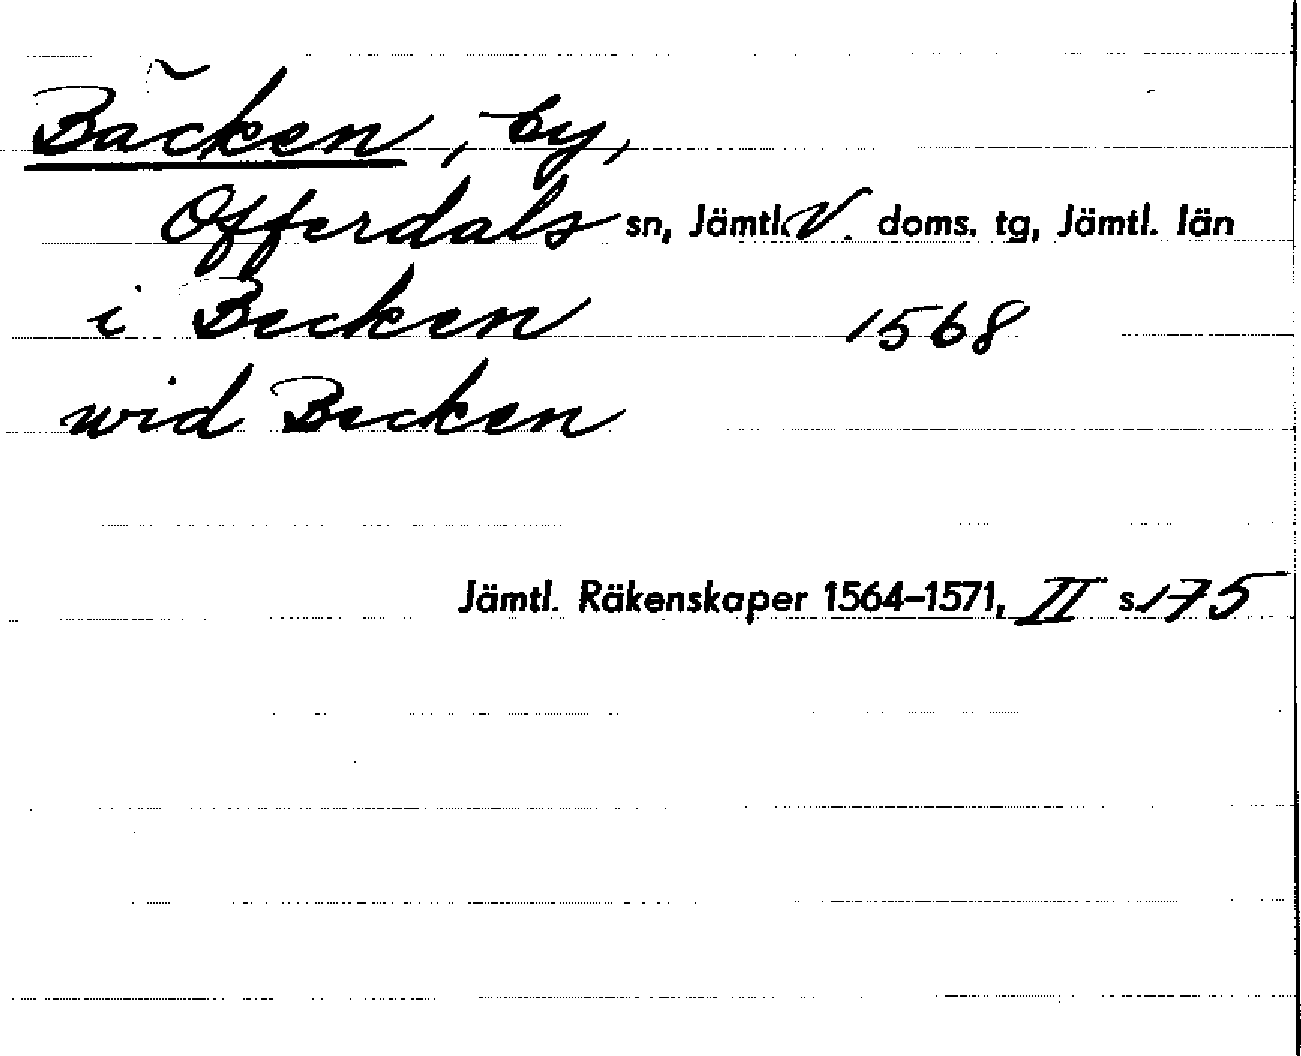 Bäcken, by,
Offerdals sn, Jämtl. V. doms. tg, Jämtl. län
i Becken 1568
wid Becken
Jämtl. Räkenskaper 1564–1571, II s. 175